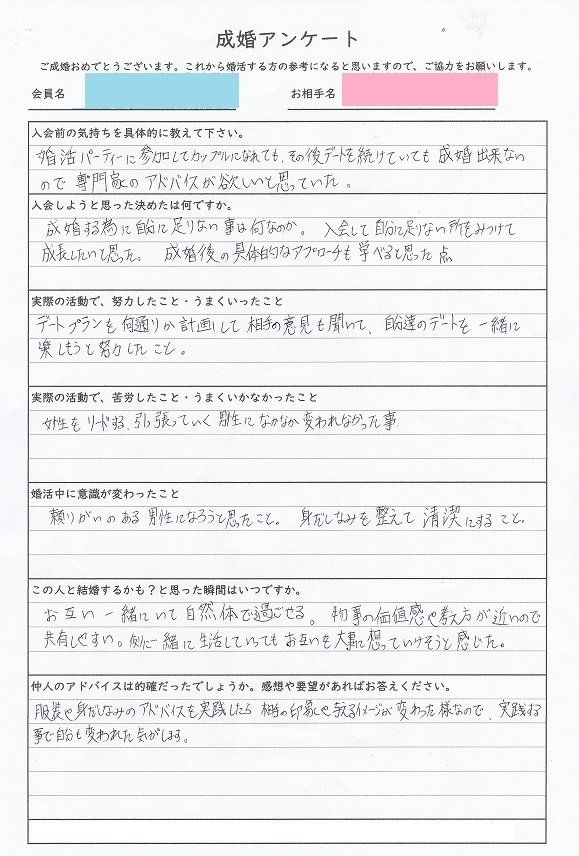 成婚アンケート
ご成婚おめでとうございます。これから婚活する方の参考になると思いますので、ご協力をお願いします。
会員名
お相手名
入会前の気持ちを具体的に教えて下さい。
婚活パーティーに参加してカップルになれても、その後デートを続けていても 成婚出来ない
ので 専門家の アドバイスが欲しいと思っていた。
入会しようと思った決めたは何ですか。
成婚する為に自分に足りない事は何なのか。 入会して自分に足りない所をみつけて
成長したいと思った。 成婚後の具体的なアプローチも学べると思った点
実際の活動で、努力したこと・うまくいったこと
デートプランを何通りか計画して相手の意見も聞いて、自分達のデートを一緒に
楽しもうと努力したこと。
実際の活動で、苦労したこと・うまくいかなかったこと
女性をリードする、引っ張っていく男性になかなか変われなかった事
婚活中に意識が変わったこと
頼りがいのある男性になろうと思ったこと。 身だしなみを整えて 清潔にすること。
この人と結婚するかも？と思った瞬間はいつですか。
お互い一緒にいて自然体で過ごせる。 物事の価値感や考え方が近いので
共有しやすい。 一緒に生活していってもお互いを大事に想っていけそうと感じた。
仲人のアドバイスは的確だったでしょうか。感想や要望があればお答えください。
服装や身だしなみのアドバイスを実践したら 相手の印象や与えるイメージが変わった様なので、実践する
事で自分も変われた気がします。